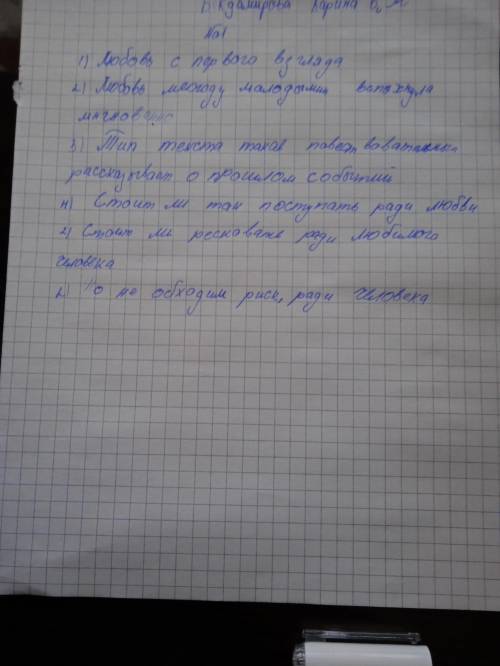 Карина
№1
1) Любовь с первого взгляда
2) Любовь между молодыми вспыхнула
мгновенно
3) Тип текста такая
рассказывает о прошлом событий
4) Стоит ли так поступать ради любви
2) Стоит ли ради любимого
человека
не обходим риск, ради человека